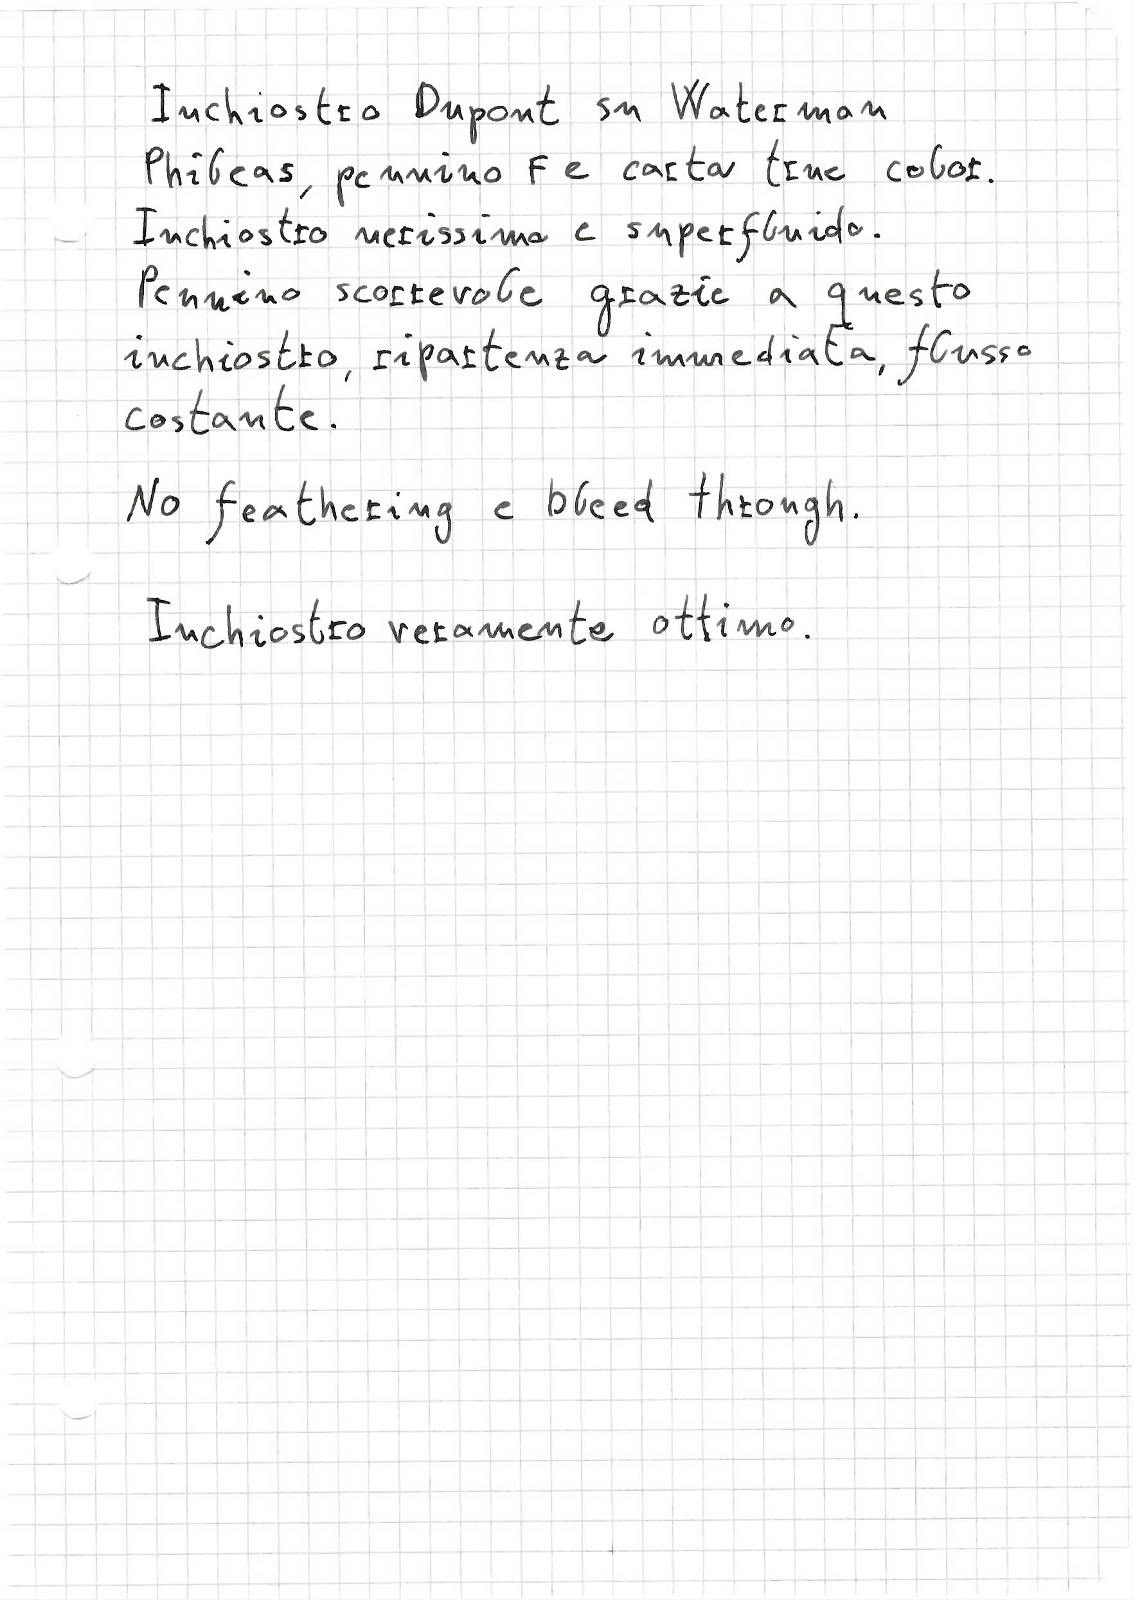 Inchiostro Dupont su Waterman
Phileas, pennino F e carta true color.
Inchiostro nerissimo e superfluido.
Pennino scorrevole grazie a questo
inchiostro, ripartenza immediata, flusso
costante.
No feathering e bleed through.
Inchiostro veramente ottimo.